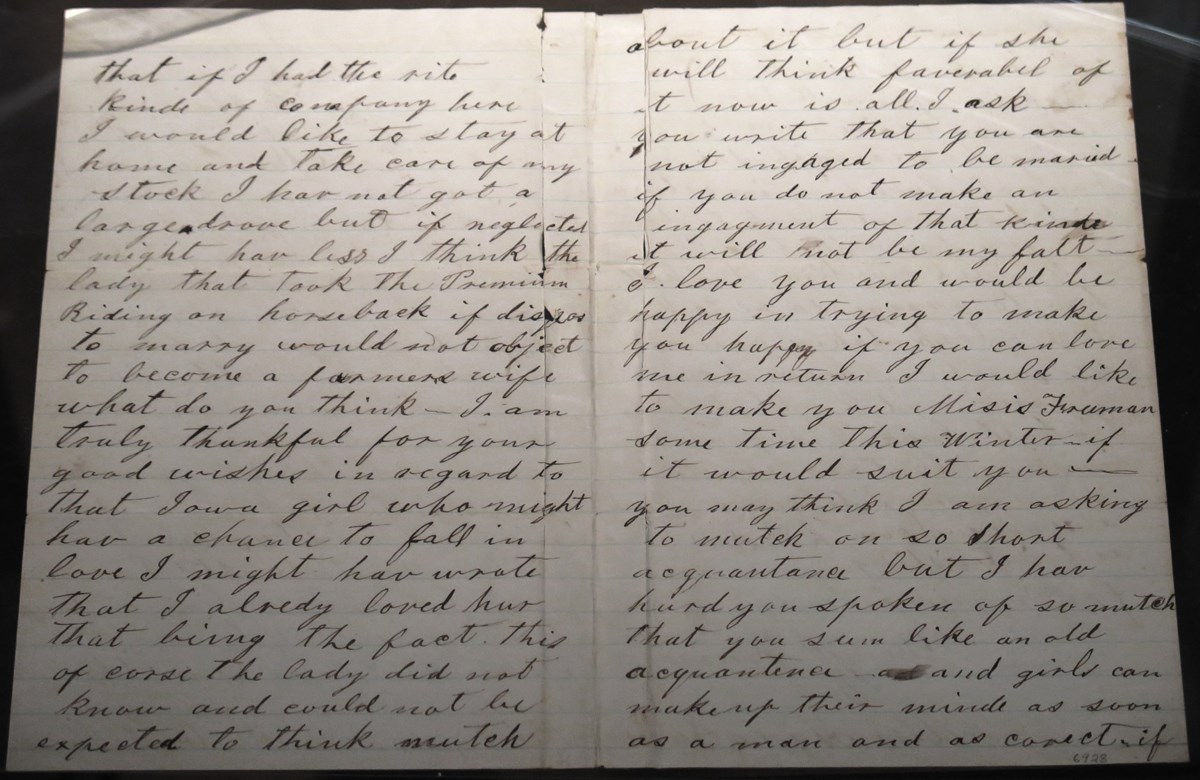 that if I had the rite
kinde of company here
I would like to stay at
home and take care of my
stock I hav not got a
large drove but if neglected
I might hav less I think the
lady that took the Premium
Riding on horseback if dispos
to marry would not object
to become a farmers wife
what do you think — I am
truly thankful for your
good wishes in regard to
that Iowa girl who might
hav a chance to fall in
love I might hav wrote
that I alredy loved hur
that biing the fact. this
of corse the lady did not
know and could not be
expected to think mutch
about it but if she
will think faverabel of
it now is all I ask —
you write that you are
not ingaged to be maried
if you do not make an
ingagment of that kinde
it will not be my falt —
I love you and would be
happy in trying to make
you happy if you can love
me in return I would like
to make you Misis Freeman
some time this Winter - if
it would suit you —
you may think I am asking
to mutch on so short
acquantance but I hav
hurd you spoken of so mutch
that you sum like an old
acquantence and girls can
make up their minde as soon
as a man and as corect - if
6928